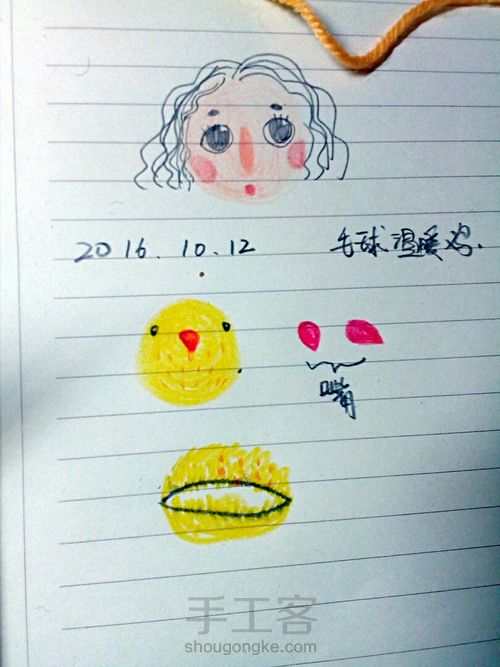 2016.10.12 毛球温暖鸡.
嘴
手工客
shougongke.com